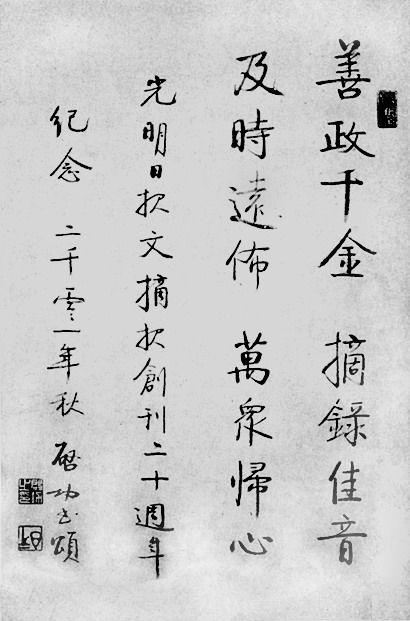 善政千金 摘錄佳音
及時遠佈 萬衆歸心
光明日报文摘报創刊二十週年
紀念 二千零一年秋 啟功書頌